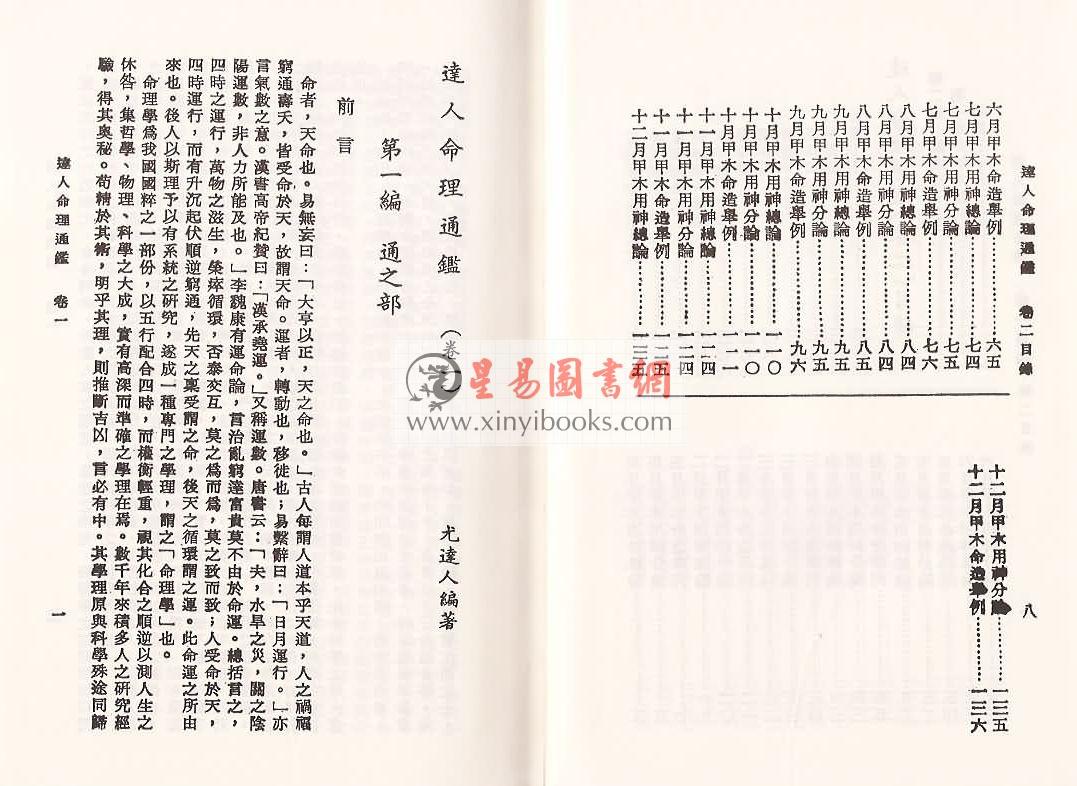 達人命理通鑑 卷二目錄
六月甲木命造舉例…………六五
七月甲木用神總論…………七四
七月甲木用神分論…………七五
七月甲木命造舉例…………七六
八月甲木用神總論…………八四
八月甲木用神分論…………八四
八月甲木命造舉例…………八五
九月甲木用神總論…………九五
九月甲木用神分論…………九五
九月甲木命造舉例…………九六
十月甲木用神總論…………一一〇
十月甲木用神分論…………一一〇
十月甲木命造舉例…………一一一
十一月甲木用神總論…………一二四
十一月甲木用神分論…………一二四
十一月甲木命造舉例…………一二五
十二月甲木用神總論…………一三五
十二月甲木用神分論…………一三五
十二月甲木命造舉例…………一三六
八
達人命理通鑑 (卷一)
尤達人編著
第一編 通之部
前言
命者,天命也。易無妄曰:「大亨以正,天之命也。」古人每謂人道本乎天道,人之禍福
窮通壽夭,皆受命於天,故謂天命。運者,轉動也,移徙也;易繫辭曰:「日月運行。」亦
言氣數之意。漢書高帝紀贊曰:「漢承堯運。」又稱運數。唐書云:「夫,水旱之災,關之陰
陽運數,非人力所能及也。」李魏康有運命論,言治亂窮達富貴莫不由於命運。總括言之,
四時之運行,萬物之滋生,榮瘁循環,否泰交互,莫之為而為,莫之致而致;人受命於天,
四時運行,而有升沉起伏順逆窮通,先天之稟受謂之命,後天之循環謂之運。此命運之所由
來也。後人以斯理予以有系統之研究,遂成一種專門之學理,謂之「命理學」也。
命理學為我國國粹之一部份,以五行配合四時,而權衡輕重,視其化合之順逆以測人生之
休咎,集哲學、物理、科學之大成,實有高深而準確之學理在焉。數千年來積多人之研究經
驗,得其奧秘。苟精於其術,明乎其理,則推斷吉凶,言必有中。其學理原與科學殊途同歸
達人命理通鑑 卷一
一
星易圖書網
www.xinyibooks.com